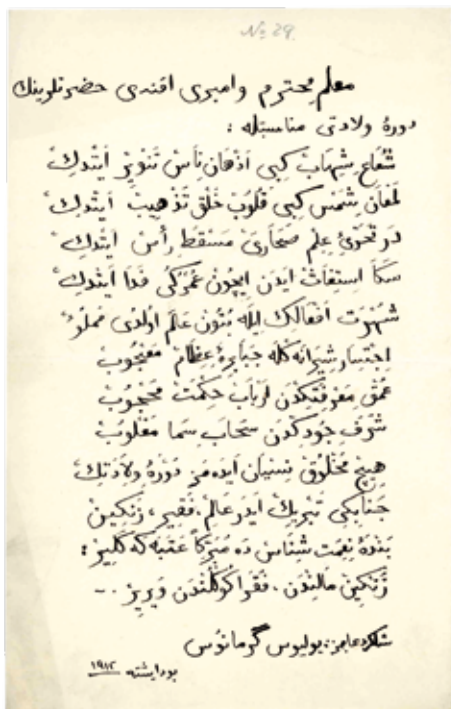 No 29.
معلم محترم وامبری افندی حضرتلرینك
دورۀ ولادتی مناسبتله :
شُعَاعِ شِهَابْ كِبی اَذْهَانِ نَاسْ تَنْوِیرْ اَیْتْدِكْ
لَمَعَانِ شَمْسْ كِبی قُلُوبِ خَلْقْ تَذْهِیبْ اَیْتْدِكْ
دَرْ تَحَرّیِ عِلْمْ صَحَارِیْ مَسْقَطِ رَأْسْ اَیْتْدِكْ
سَكَا اِسْتِفَاتْ اَیدَنْ اِیچُونْ عُمْرُكِی فِدَا اَیْتْدِكْ
شُهْرَتِ اَفْعَالِكْ اِیلَه بُتُونْ عَالَمْ اُولْدِی مَمْلُوْ
اِجْتِسَارِ شِیرَانَه كْلَه جَبَابِرَۀ عِظَامْ مَعْجُوبْ
عُمْقِ مَعْرِفَتِكْدَنْ اَرْبَابِ حِكْمَتْ مَحْجُوبْ
شَرَفِ جُودِكْدَنْ سَحَابِ سَمَا مَغْلُوبْ
هِیچْ مَخْلُوقْ نِسْیَانْ اَیدَه مَزْ دَوْرَۀ وِلَادَتِكْ
جَنَابِكِی تَبْرِیكْ اَیدَرْ عَالِمْ، فَقِیرْ، زَنْكِینْ
بَنْدَۀ نِعْمَتْ شِنَاسْ دَه مُبَرَّكْ عَتَبَه كَه كَلِیرْ :
زَنْكِینْ مَالِنْدَنْ، فُقَرَا كُوكْلُنْدَنْ وَیرِیرْ .~
شاكرد عاجز: یولیوس گرمانوس
بوداپشته ۱۹۱۲